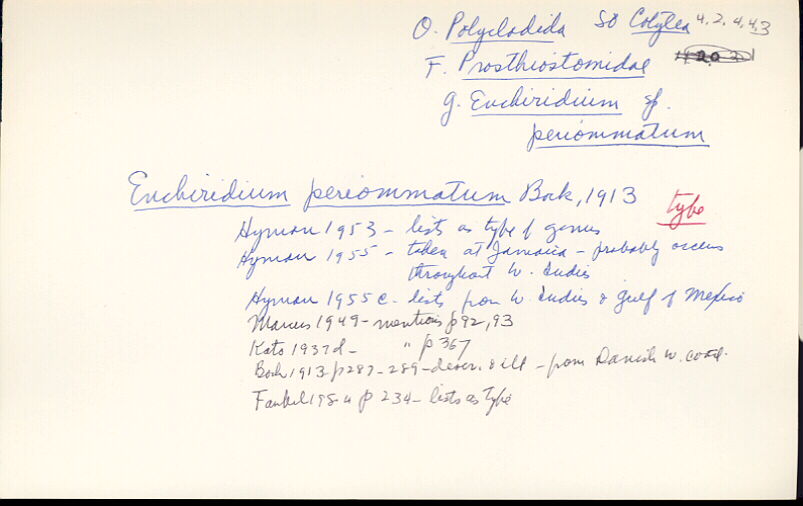 O. Polycladida SO Cotylea 4.2.4.4.3
F. Prosthiostomidae
g. Enchiridium sp.
periommatum
Enchiridium periommatum Bock, 1913 type
Hyman 1953 - lists as type of genus
Hyman 1955 - taken at Jamaica - probably occurs
throughout W. Indies
Hyman 1955c - lists from W. Indies & Gulf of Mexico
Marcus 1949 - mentions p 92, 93
Kato 1937d - " p 367
Bock 1913 p 287-289 - descr. & ill - from Danish W. coast.
Faubel p 234 - lists as type